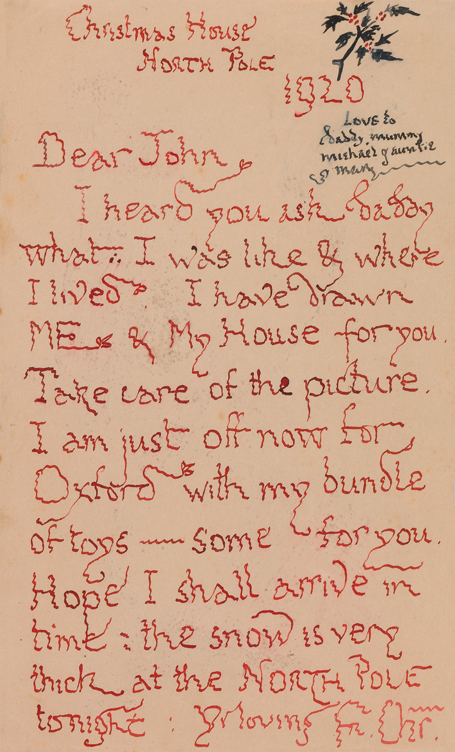 Christmas House
NORTH POLE
1920
Love to
daddy, mummy
michael & auntie
& mary
Dear John,
I heard you ask daddy
what I was like & where
I lived. I have drawn
ME & My House for you.
Take care of the picture.
I am just off now for
Oxford with my bundle
of toys — some for you.
Hope I shall arrive in
time: the snow is very
thick at the NORTH POLE
tonight: Yr loving Fr. Chr.